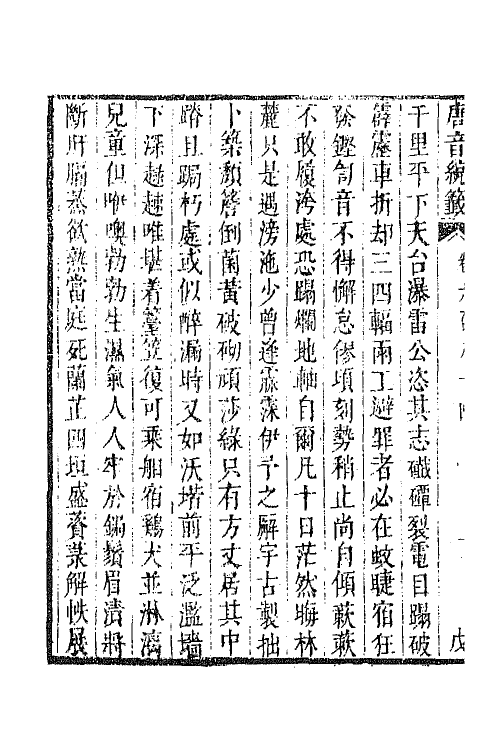 唐音統籖
千里平下天台瀑雷公恣其志䃸磹裂電目蹋破
霹靂車折却三四輻雨工避罪者必在蚊睫宿狂
發鏗訇音不得懈怠僇頃刻勢稍止尚自傾蔌蔌
不敢履洿處恐蹋爛地軸自爾凡十日茫然晦林
麓只是遇滂沲少曾逢霡霂伊予之廨宇古製拙
卜築頹簷倒菌黃破砌頑莎綠只有方丈居其中
踏且跼朽處或似醉漏時又如沃堦前平泛濫墻
下深趢趢唯堪着簦笠復可乘舶宿鷄犬並淋漓
兒童但咿噢勃勃生濕氣人人牢於鋦鬚眉漬將
斷肝膈蒸欲熟當庭死蘭芷四垣盛薋菉解帙展
戊